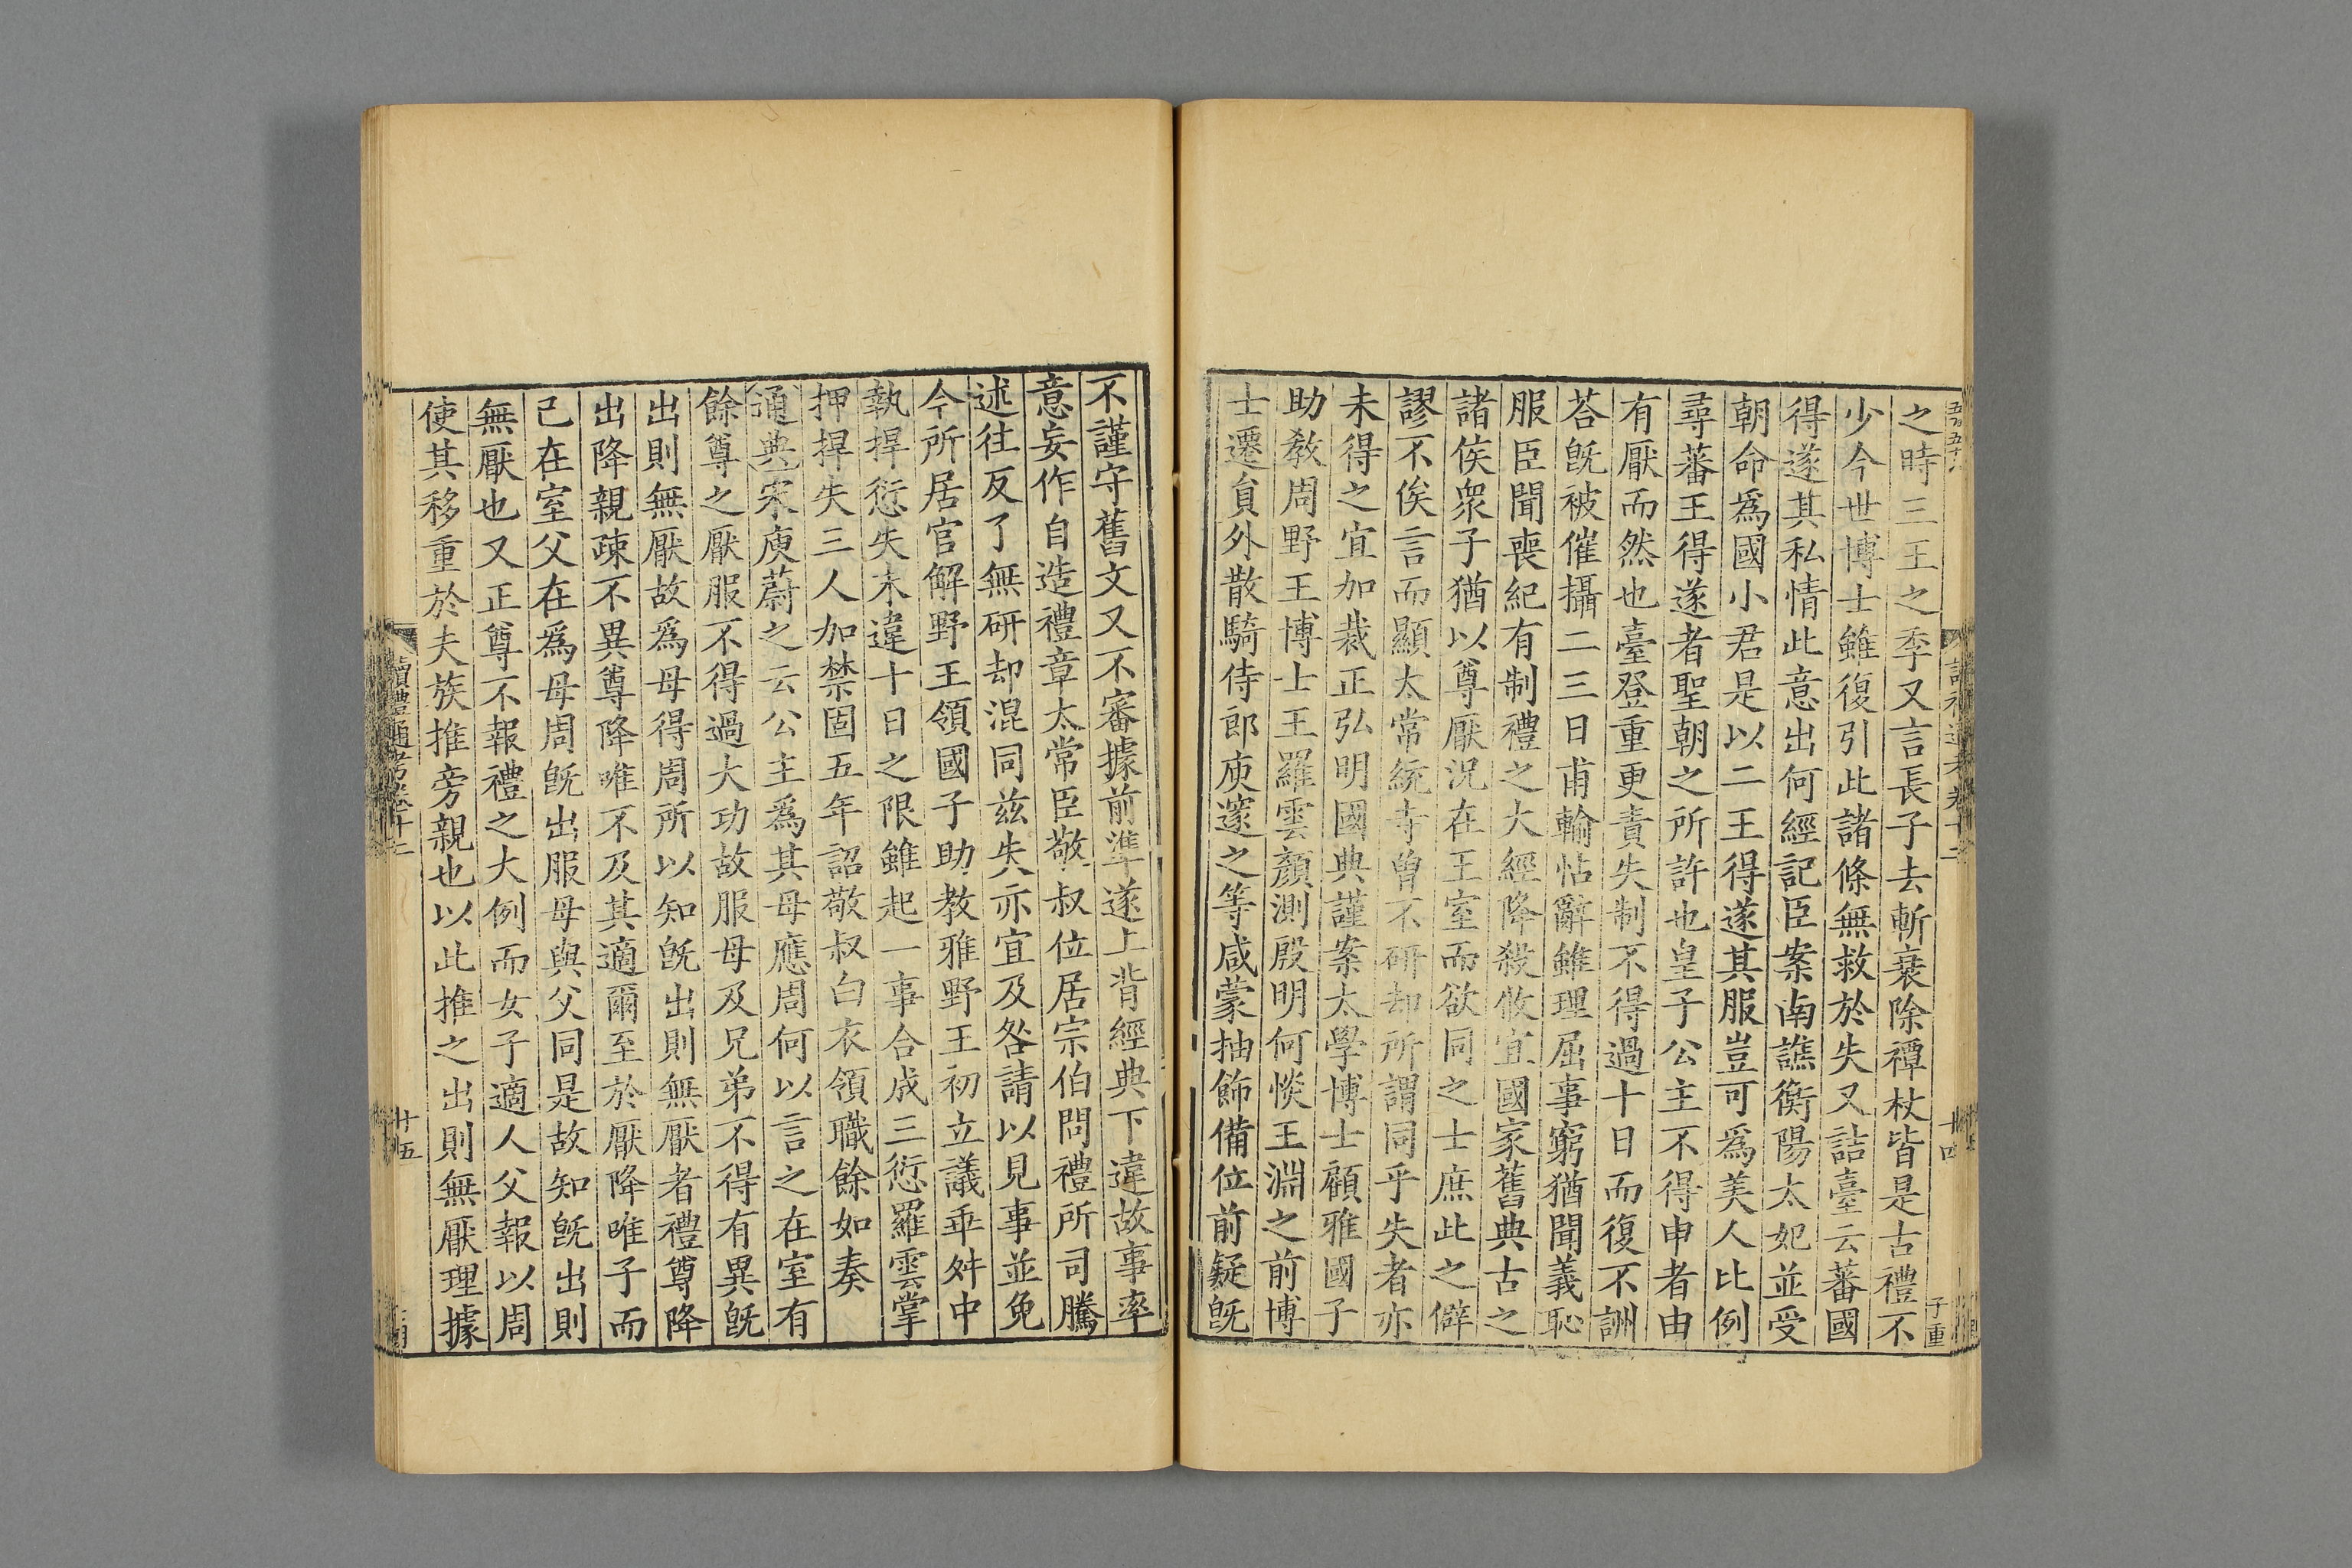 之時三王之季又言長子去斬衰除禫杖皆是古禮不
少今世博士雖復引此諸條無救於失又詰臺云蕃國
得遂其私情此意出何經記臣案南譙衡陽太妃並受
朝命爲國小君是以二王得遂其服豈可爲美人比例
尋蕃王得遂者聖朝之所許也皇子公主不得申者由
有厭而然也臺登重更責失制不得過十日而復不訓
荅旣被催攝二三日甫輸帖辭雖理屈事窮猶聞義恥
服臣聞喪紀有制禮之大經降殺攸宜國家舊典古之
諸侯衆子猶以尊厭況在王室而欲同之士庶此之僻
謬不俟言而顯太常統寺曾不研却所謂同乎失者亦
未得之宜加裁正弘明國典謹案太學博士顧雅國子
助敎周野王博士王羅雲顏測殷明何惔王淵之前博
士遷員外散騎侍郎庾邃之等咸蒙抽飾備位前疑旣
不謹守舊文又不審據前準遂上背經典下違故事率
意妄作自造禮章太常臣敬叔位居宗伯問禮所司騰
述往反了無研却混同茲失亦宜及咎請以見事並免
今所居官解野王領國子助敎雅野王初立議乖舛中
執捍愆失未違十日之限雖起一事合成三愆羅雲掌
押捍失三人加禁固五年詔敬叔白衣領職餘如奏
通典宋庾蔚之云公主爲其母應周何以言之在室有
餘尊之厭服不得過大功故服母及兄弟不得有異旣
出則無厭故爲母得周所以知旣出則無厭者禮尊降
出降親疎不異尊降唯不及其適爾至於厭降唯子而
己在室父在爲母周旣出服母與父同是故知旣出則
無厭也又正尊不報禮之大例而女子適人父報以周
使其移重於夫族推旁親也以此推之出則無厭理據
讀禮通考卷十二
十五